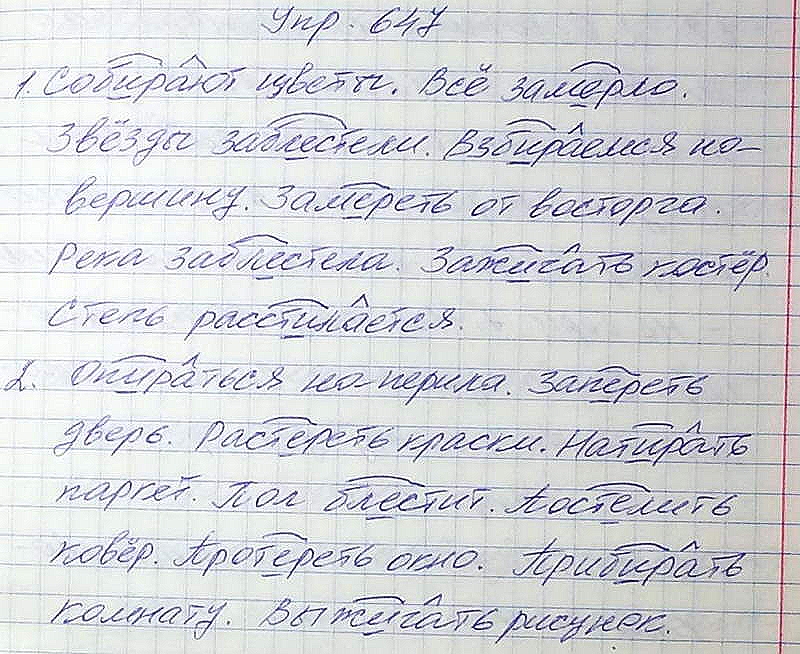 Упр. 647
1. Собирают цветы. Всё замерло.
Звёзды заблестели. Взбираемся на
вершину. Замереть от восторга.
Река заблестела. Зажигать костёр.
Степь расстилается.
2. Опираться на перила. Запереть
дверь. Растереть краски. Натирать
паркет. Пол блестит. Постелить
ковёр. Протереть окно. Прибирать
комнату. Выжигать рисунок.